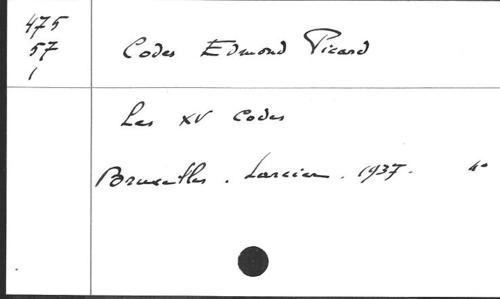 475
57
1
Codes Edmond Picard
Les XV Codes
Bruxelles . Larcier . 1937. 4°